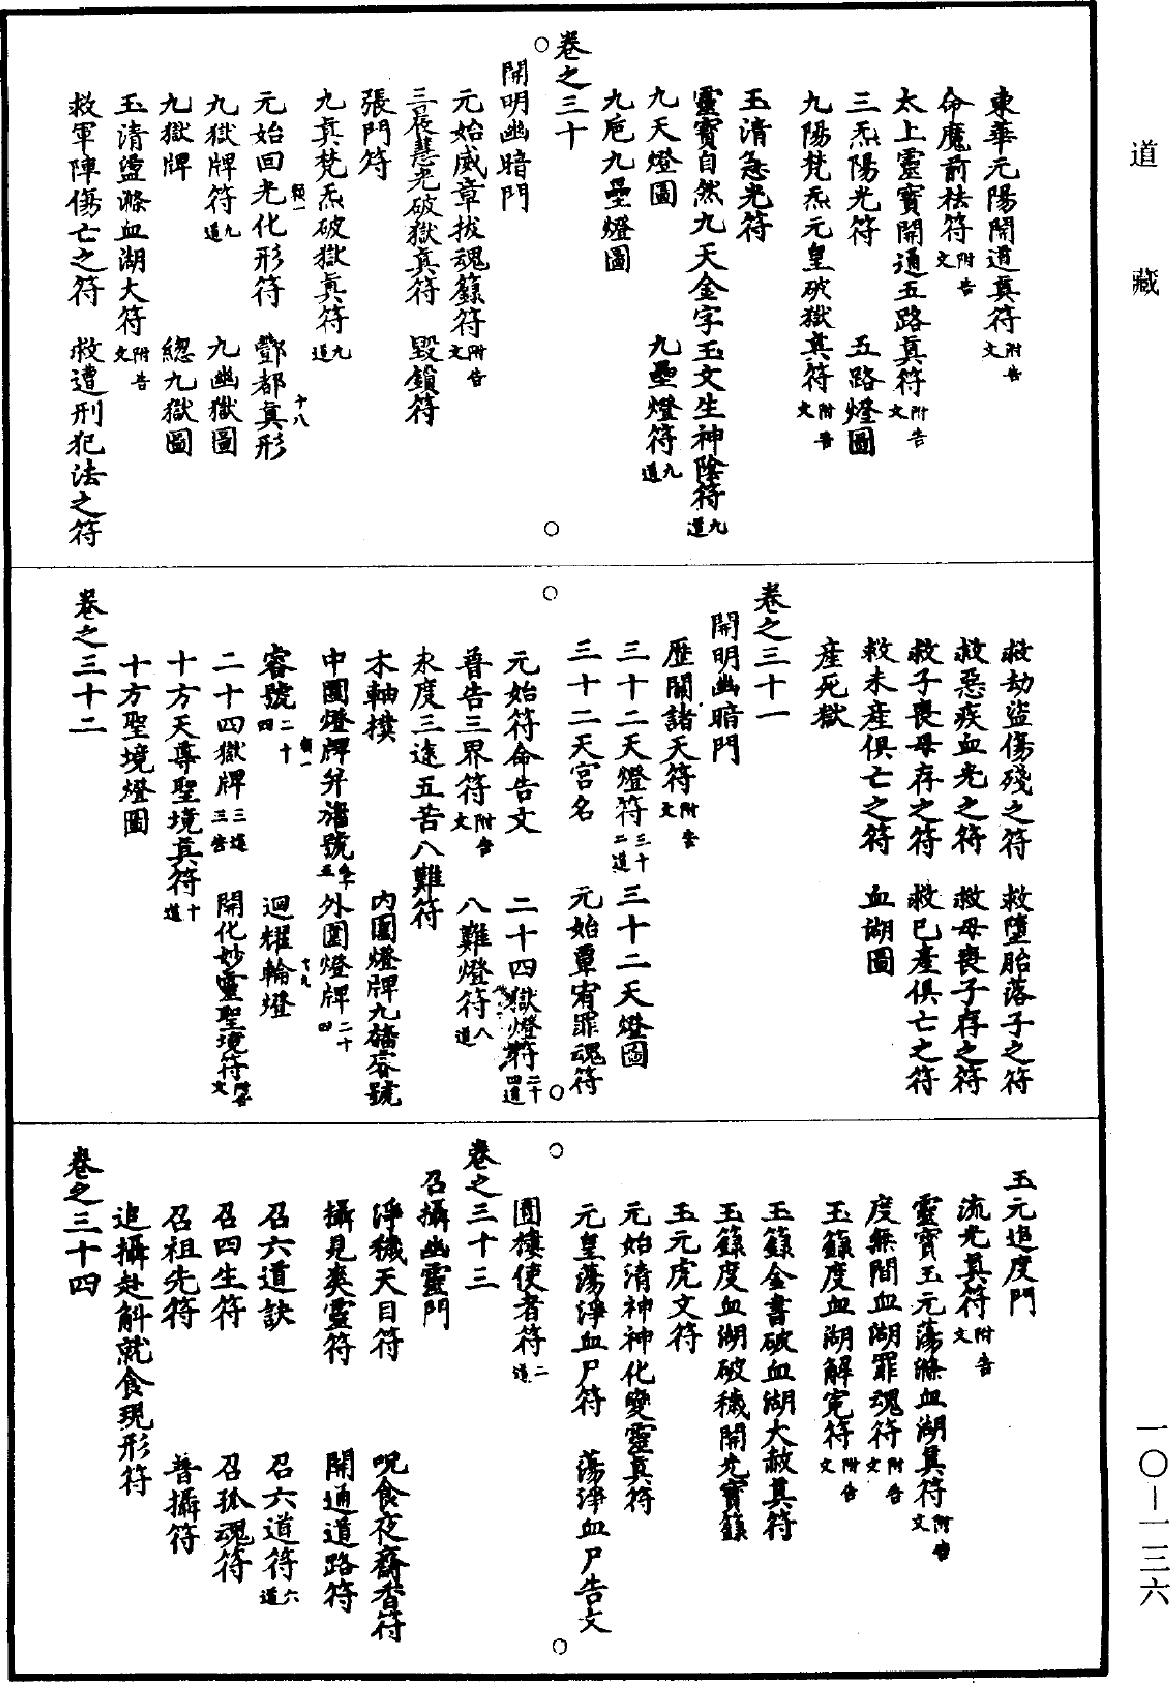 道藏
東華元陽開道真符附告文
命魔前祛符附告文
太上靈寶開通五路真符附告文
三炁陽光符　五路燈圖
九陽梵炁元皇破獄真符附告文
玉清急光符
靈寶自然九天金字玉文生神陰符九道
九天燈圖　九壘燈符九道
九巵九壘燈圖
卷之三十
開明幽暗門
元始威章拔魂籙符附告文
三晨慧光破獄真符　毀鎖符
張門符
九真梵炁破獄真符九道
元始回光化形符　酆都真形
九獄牌符九道　九幽獄圖
九獄牌　總九獄圖
玉清盪滌血湖大符附告文
救軍陣傷亡之符　救遭刑犯法之符
救劫盜傷殘之符　救墮胎落子之符
救惡疾血光之符　救母喪子存之符
救子喪母存之符　救已產俱亡之符
救未產俱亡之符　血湖圖
產死獄
卷之三十一
開明幽暗門
歷關諸天符附告文
三十二天燈符三十二道　三十二天燈圖
三十二天宮名　元始覃宥罪魂符
元始符命告文　二十四獄燈符二十四道
普告三界符附告文　八難燈符八道
永度三途五苦八難符
木軸樸　內圍燈牌九旛睿號
中圍燈牌并旛號　外圍燈牌二十四
睿號二十四　迴耀輪燈
二十四獄牌三道三告　開化妙靈聖境符附告文
十方天尊聖境真符十道
十方聖境燈圖
卷之三十二
玉元追度門
流光真符附告文
靈寶玉元蕩滌血湖真符附告文
度無間血湖罪魂符附告文
玉籙度血湖解冤符附告文
玉籙金書破血湖大赦真符
玉籙度血湖破穢開光寶籙
玉元虎文符
元始清神神化變靈真符
元皇蕩淨血尸符　蕩淨血尸告文
圊樓使者符二道
卷之三十三
召攝幽靈門
淨穢天目符　呪食夜齋香符
攝見爽靈符　開通道路符
召六道訣　召六道符六道
召四生符　召孤魂符
召祖先符　普攝符
追攝赴斛就食現形符
卷之三十四
一〇—一三六